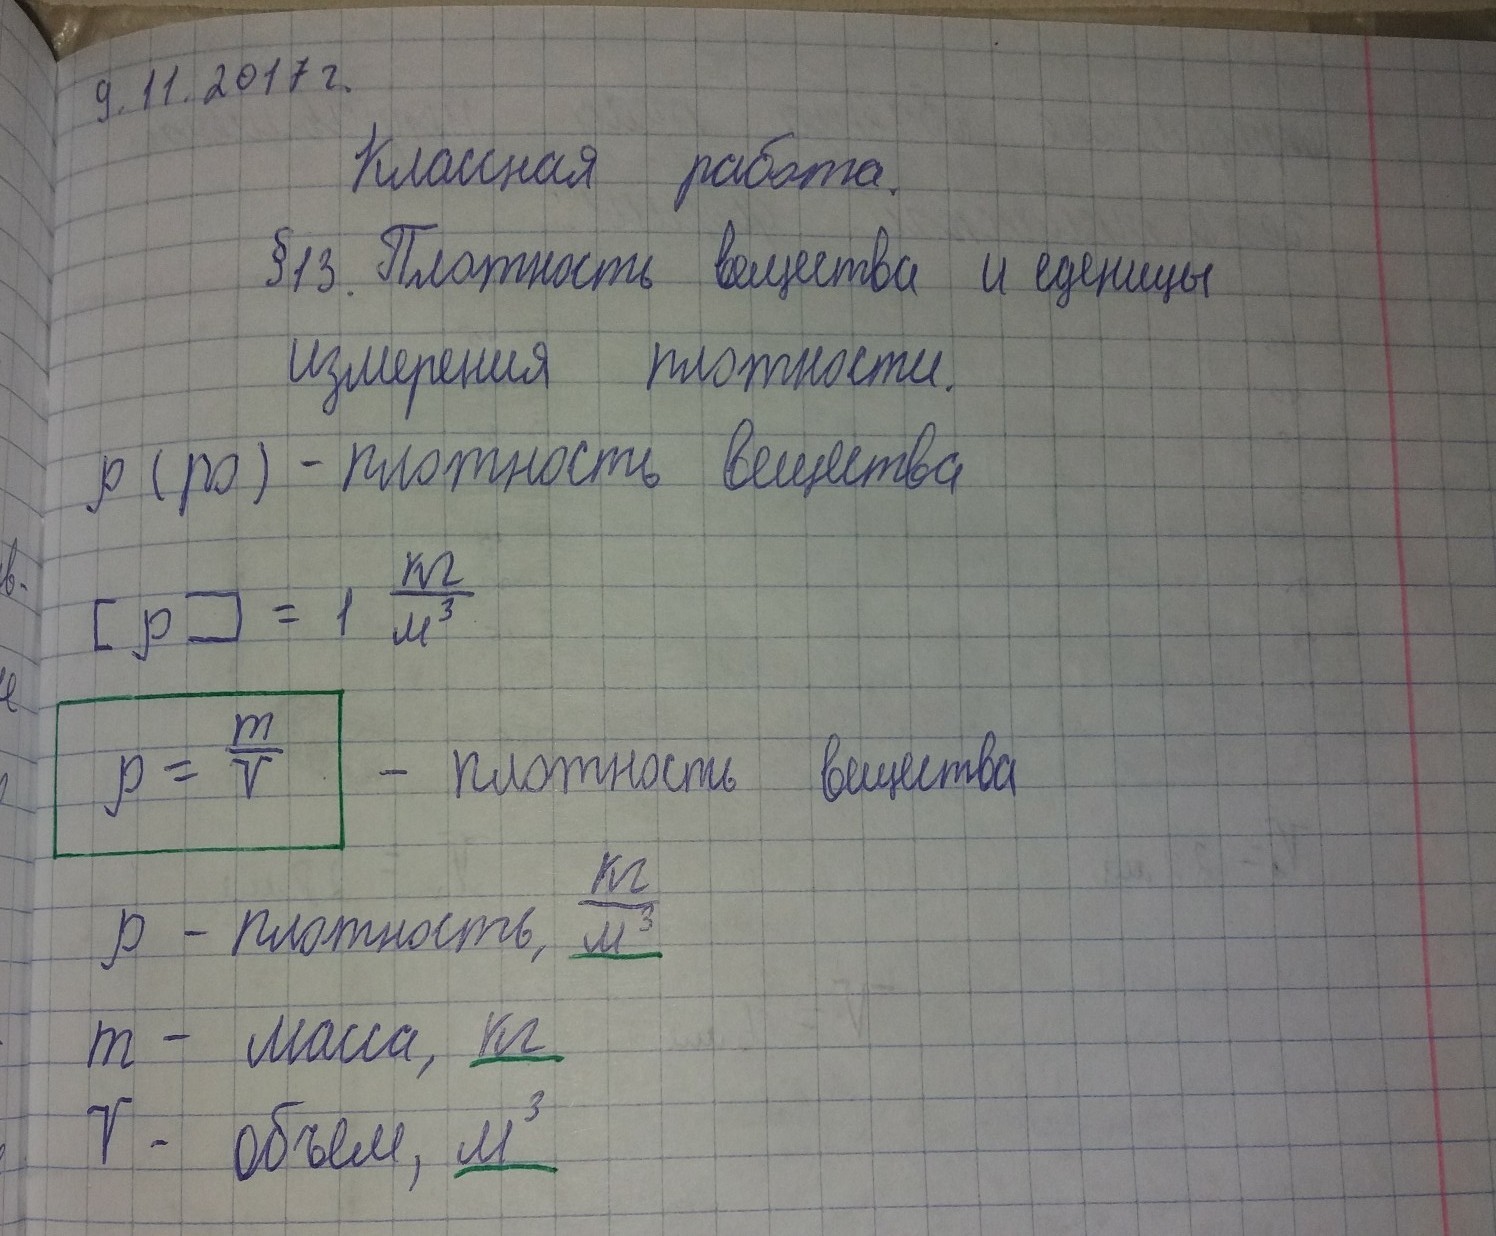 9.11.2017г.
Классная работа.
§13. Плотность вещества и еденицы
измерения плотности.
ρ (ро) - плотность вещества
[ρ] = 1 кг/м³
ρ = m/V - плотность вещества
ρ - плотность, кг/м³
m - масса, кг
V - объем, м³